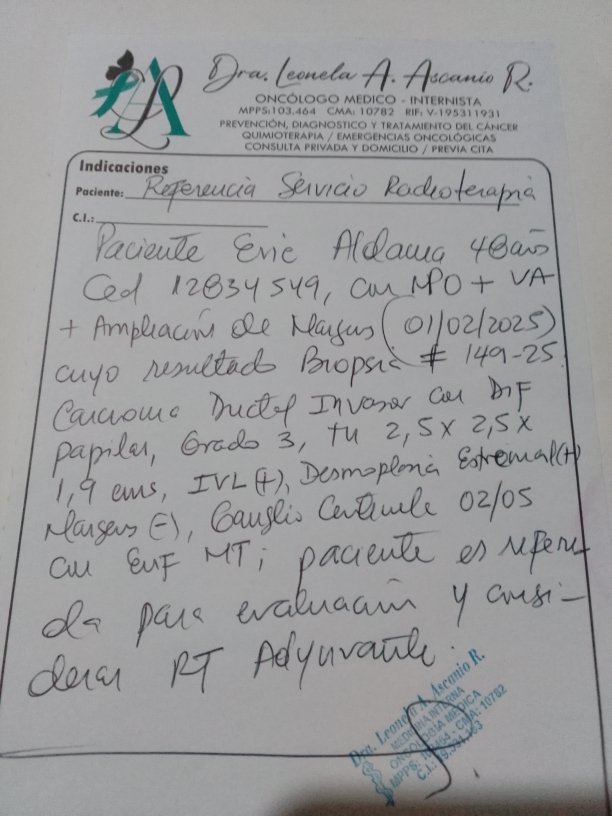 Dra. Leonela A. Ascanio R.
ONCÓLOGO MEDICO - INTERNISTA
MPPS:103.464 CMA: 10782 RIF: V-195311931
PREVENCIÓN, DIAGNOSTICO Y TRATAMIENTO DEL CÁNCER
QUIMIOTERAPIA / EMERGENCIAS ONCOLÓGICAS
CONSULTA PRIVADA Y DOMICILIO / PREVIA CITA
Indicaciones
Paciente: Referencia Servicio Radioterapia
C.I.:
Paciente Aldama 48 años
Ced 12834549, con MPO + VA
+ Ampliación de Margenes (01/02/2025)
cuyo resultado Biopsia # 149-25
Carcinoma Ductal Invasor con Dif
papilar, Grado 3, tu 2,5 x 2,5 x
1,9 cms, IVL (+), Desmoplasia Estromal (+)
Margenes (-), Ganglio Centinela 02/05
con Enf MT; paciente es referi
da para evaluación y consi-
derar RT Adyuvante.
Dra. Leonela A. Ascanio R.
MEDICINA INTERNA
ONCOLOGIA MEDICA
MPPS: 103.464 - CMA: 10782
C.I.: